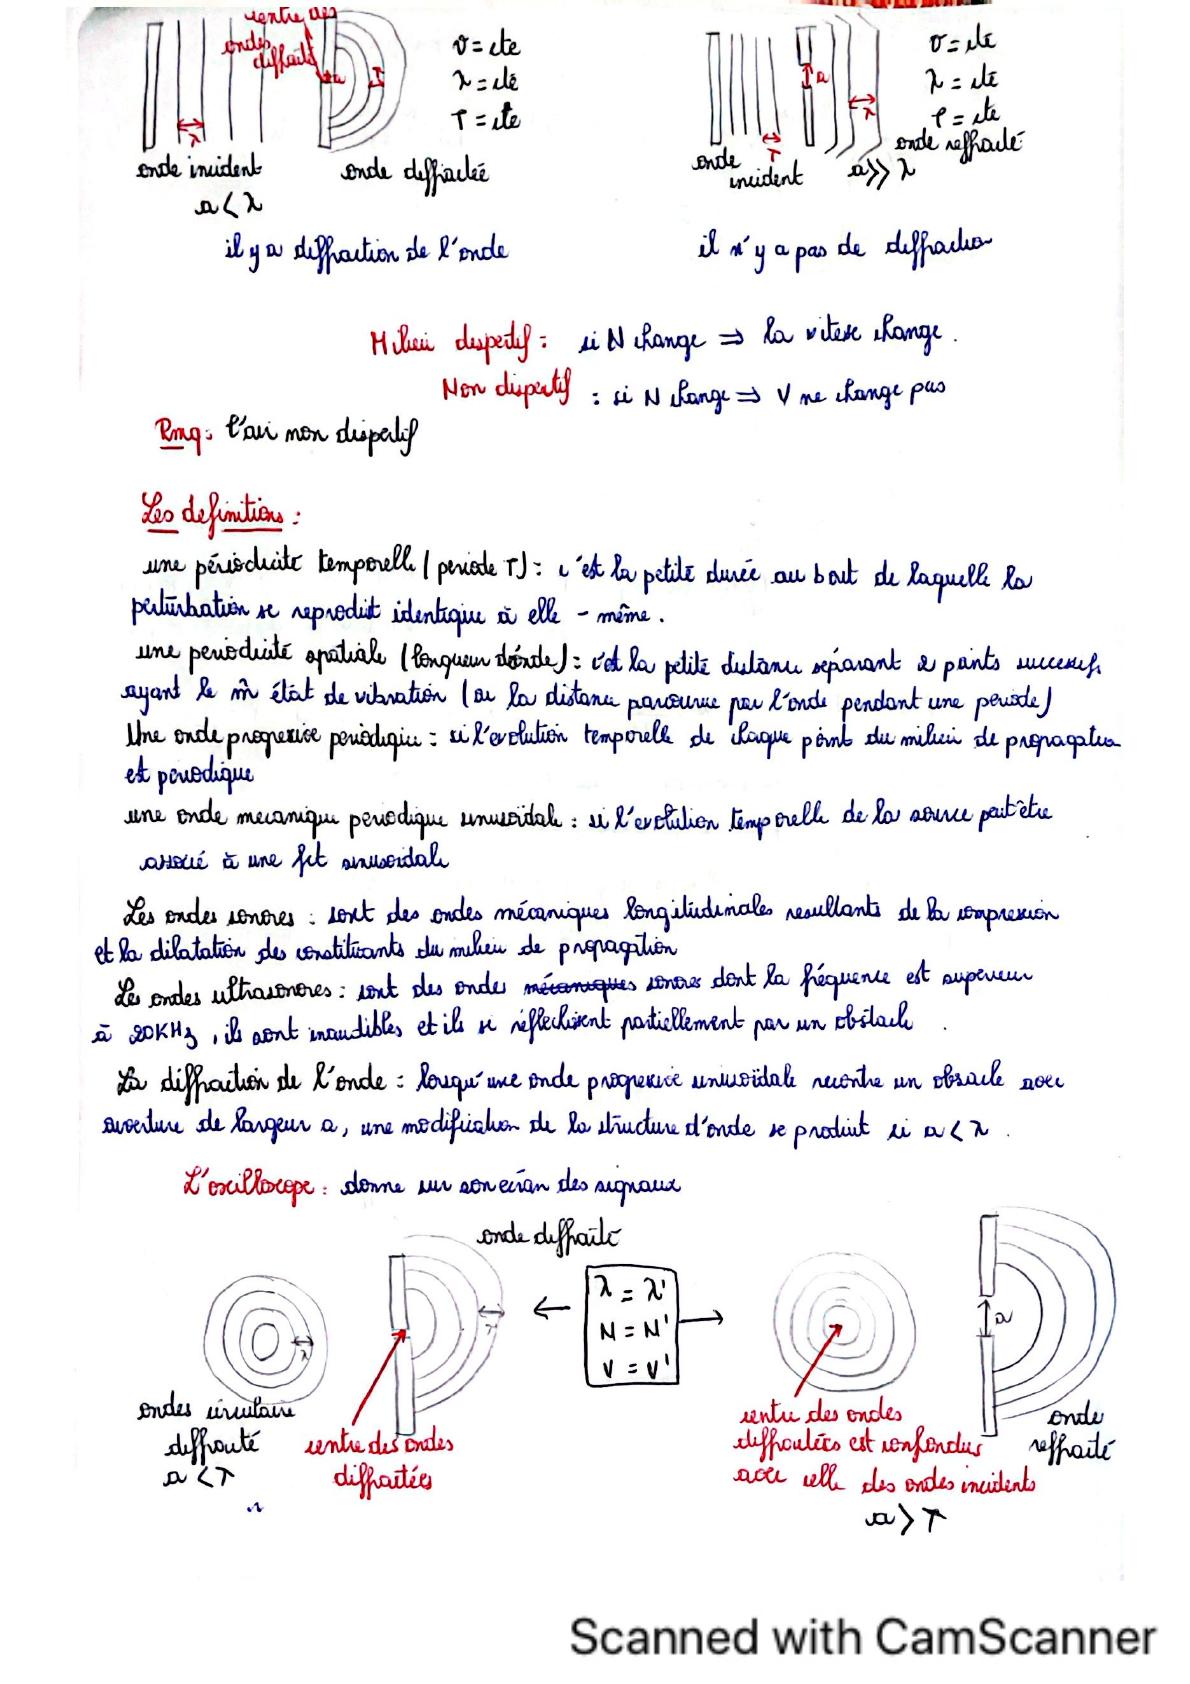 centre des
ondes
diffracté
a
λ
v = cte
λ = cte
T = cte
onde incident
a < λ
onde diffractée
il y a diffraction de l'onde
a
λ
v = cte
λ = cte
T = cte
onde
incident
a >> λ
onde reffracté
il n'y a pas de diffraction
Milieu dispertif : si N change ⇒ la vitesse change.
Non dispertif : si N change ⇒ V ne change pas
Rmq : l'air non dispertif
Les definitions :
une périodicité temporelle (periode T) : c'est la petite durée au bout de laquelle la
perturbation se reproduit identique à elle - même.
une periodicité spatiale (longueur d'onde) : c'est la petite distance séparant 2 points successifs
ayant le m̂ état de vibration (ou la distance parcourue par l'onde pendant une periode)
Une onde progressive periodique : si l'evolution temporelle de chaque point du milieu de propagation
est periodique
une onde mecanique periodique sinusoïdale : si l'evolution temporelle de la source peut être
associé à une fct sinusoidale
Les ondes sonores : sont des ondes mécaniques longitudinales resultants de la compression
et la dilatation des constituants du milieu de propagation
Les ondes ultrasonores : sont des ondes mécaniques sonores dont la fréquence est superieur
à 20KHz, ils sont inaudibles et ils se réflechissent partiellement par un obstacle.
La diffraction de l'onde : lorsqu'une onde progressive sinusoïdale recontre un obsacle avec
ouverture de largeur a, une modification de la structure d'onde se produit si a < λ.
L'oscilloscope : donne sur son écran des signaux
onde diffracté
λ = λ'
N = N'
V = V'
λ
a
ondes circulaire
diffracté
a < λ
centre des ondes
diffractées
centre des ondes
diffractées est confondus
avec celle des ondes incidents
a > λ
onde
reffracté
Scanned with CamScanner